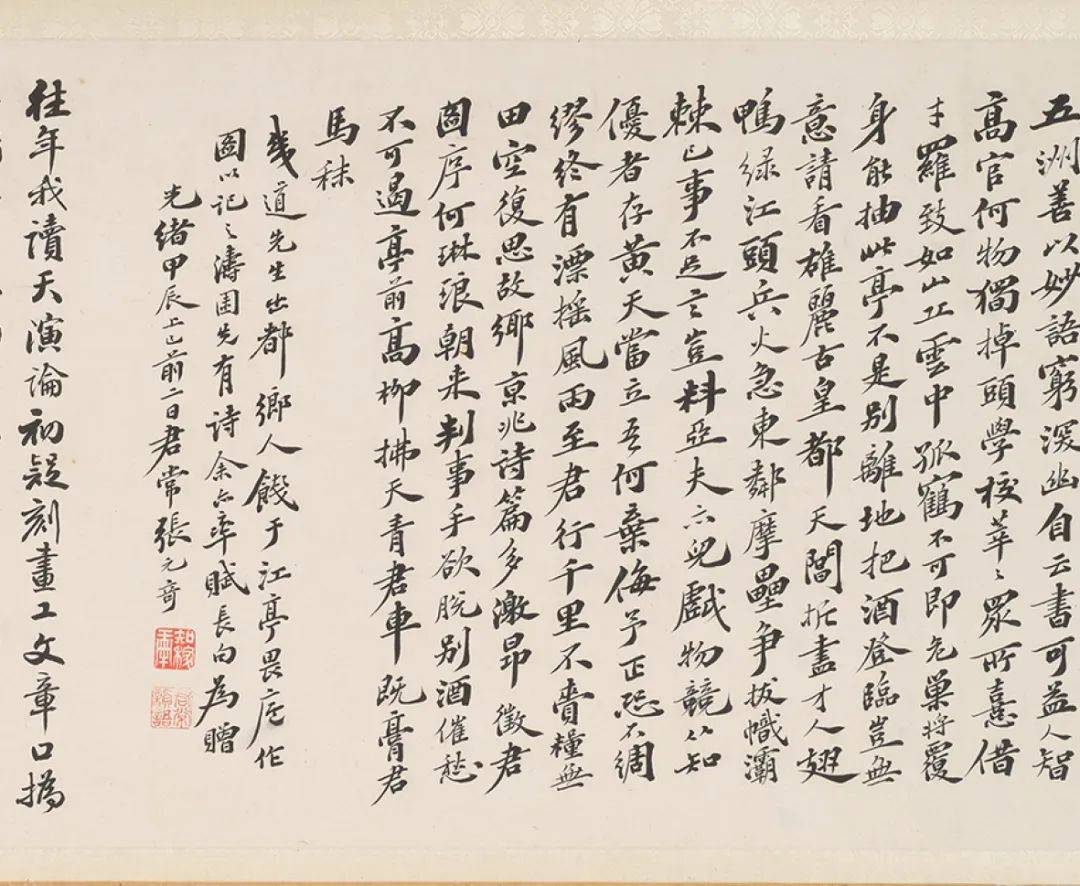 五洲善以妙語窮深幽自云書可益人智
高官何物獨掉頭學校莘〻眾所憙借
才羅致如山丘雲中孤鶴不可即危巢將覆
身能抽此亭不是別離地把酒登臨豈無
意請看雄麗古皇都天閶摧盡才人翅
鴨綠江頭兵火急東鄰摩壘爭拔幟灞
棘已事不足言豈料亞夫亦兒戲物競公知
優者存黃天當立吾何棄侮予正恐不綢
繆終有漂摇風雨至君行千里不賫糧無
田空復思故鄉京兆詩篇多激昂徵君
圖序何琳琅朝来判事手欲脫別酒催愁
不可遏亭前高柳拂天青君車既膏君
馬秣
幾道先生出都鄉人餞于江亭畏廬作
圖以記之濤園先有詩余亦率賦長句為贈
光緒甲辰上巳前二日君常張元奇
往年我讀天演論初疑刻畫工文章口撝